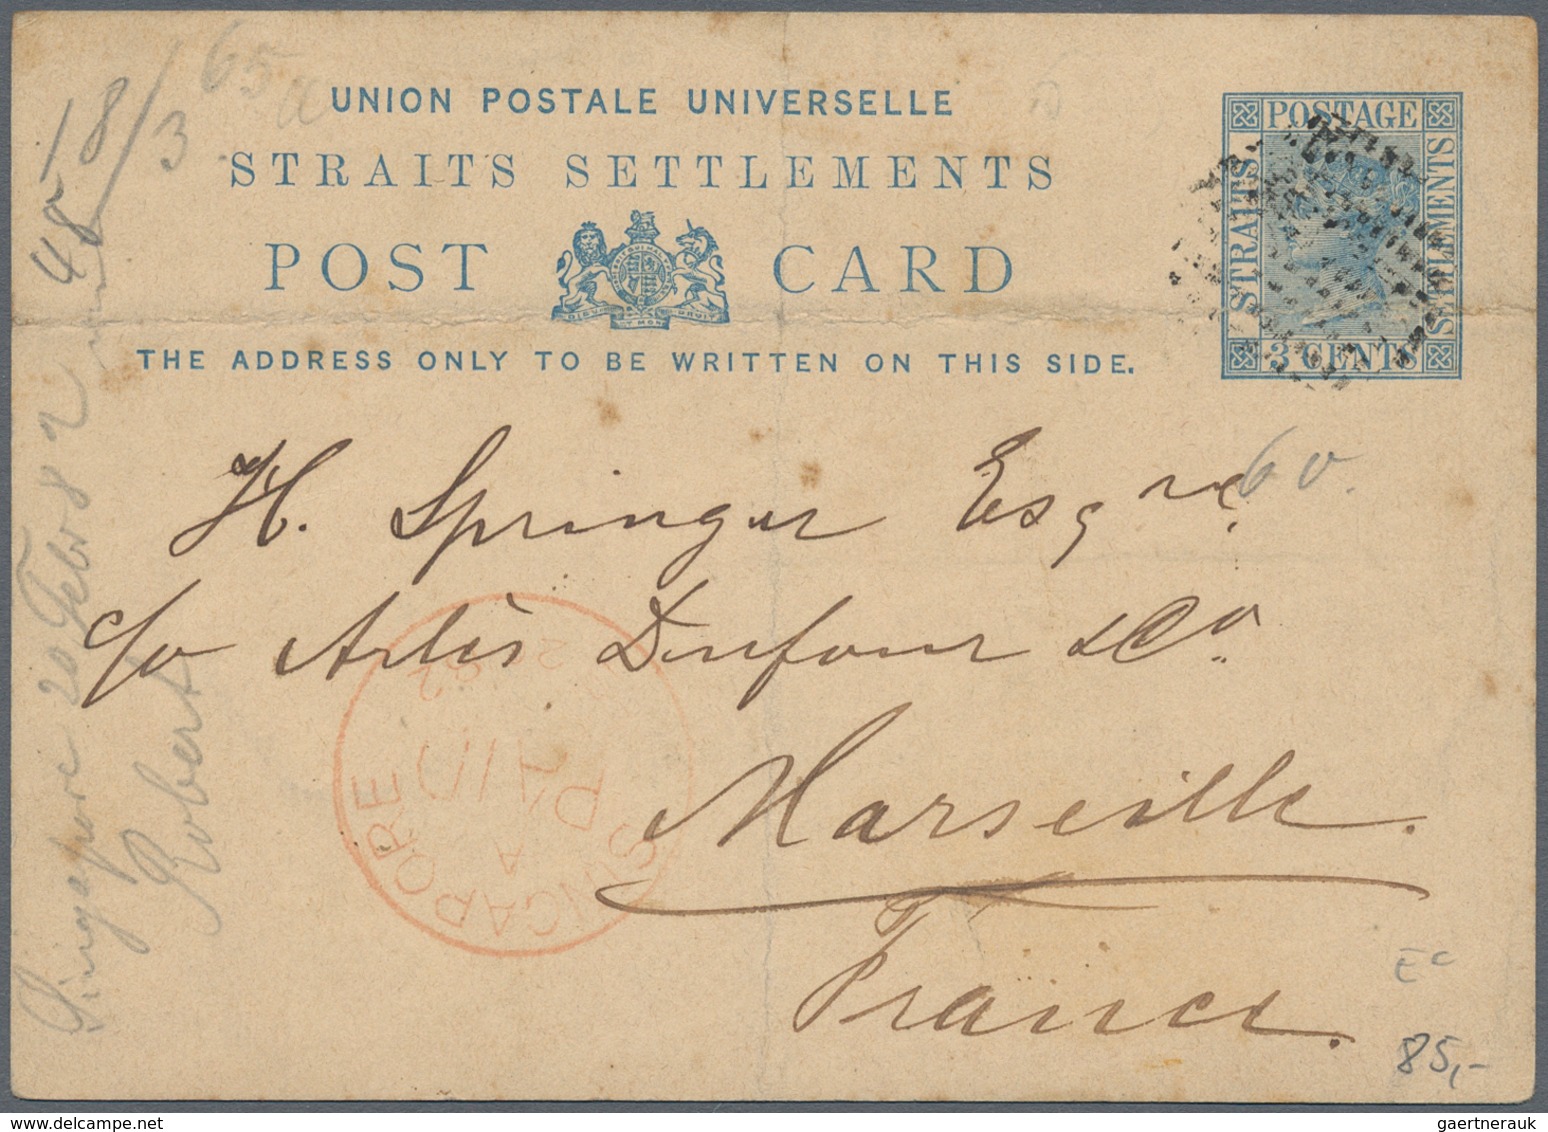 UNION POSTALE UNIVERSELLE
STRAITS SETTLEMENTS
POST CARD
THE ADDRESS ONLY TO BE WRITTEN ON THIS SIDE.
POSTAGE
STRAITS
SETTLEMENTS
3 CENTS
65
18/3
48
Singapore 20 Febr 82
Robert
H. Springer Esqre
60.
c/o Arlès Dufour & Co.
Marseille.
France.
SINGAPORE
A
PAID
82
EC
85,-
gaertnerauk